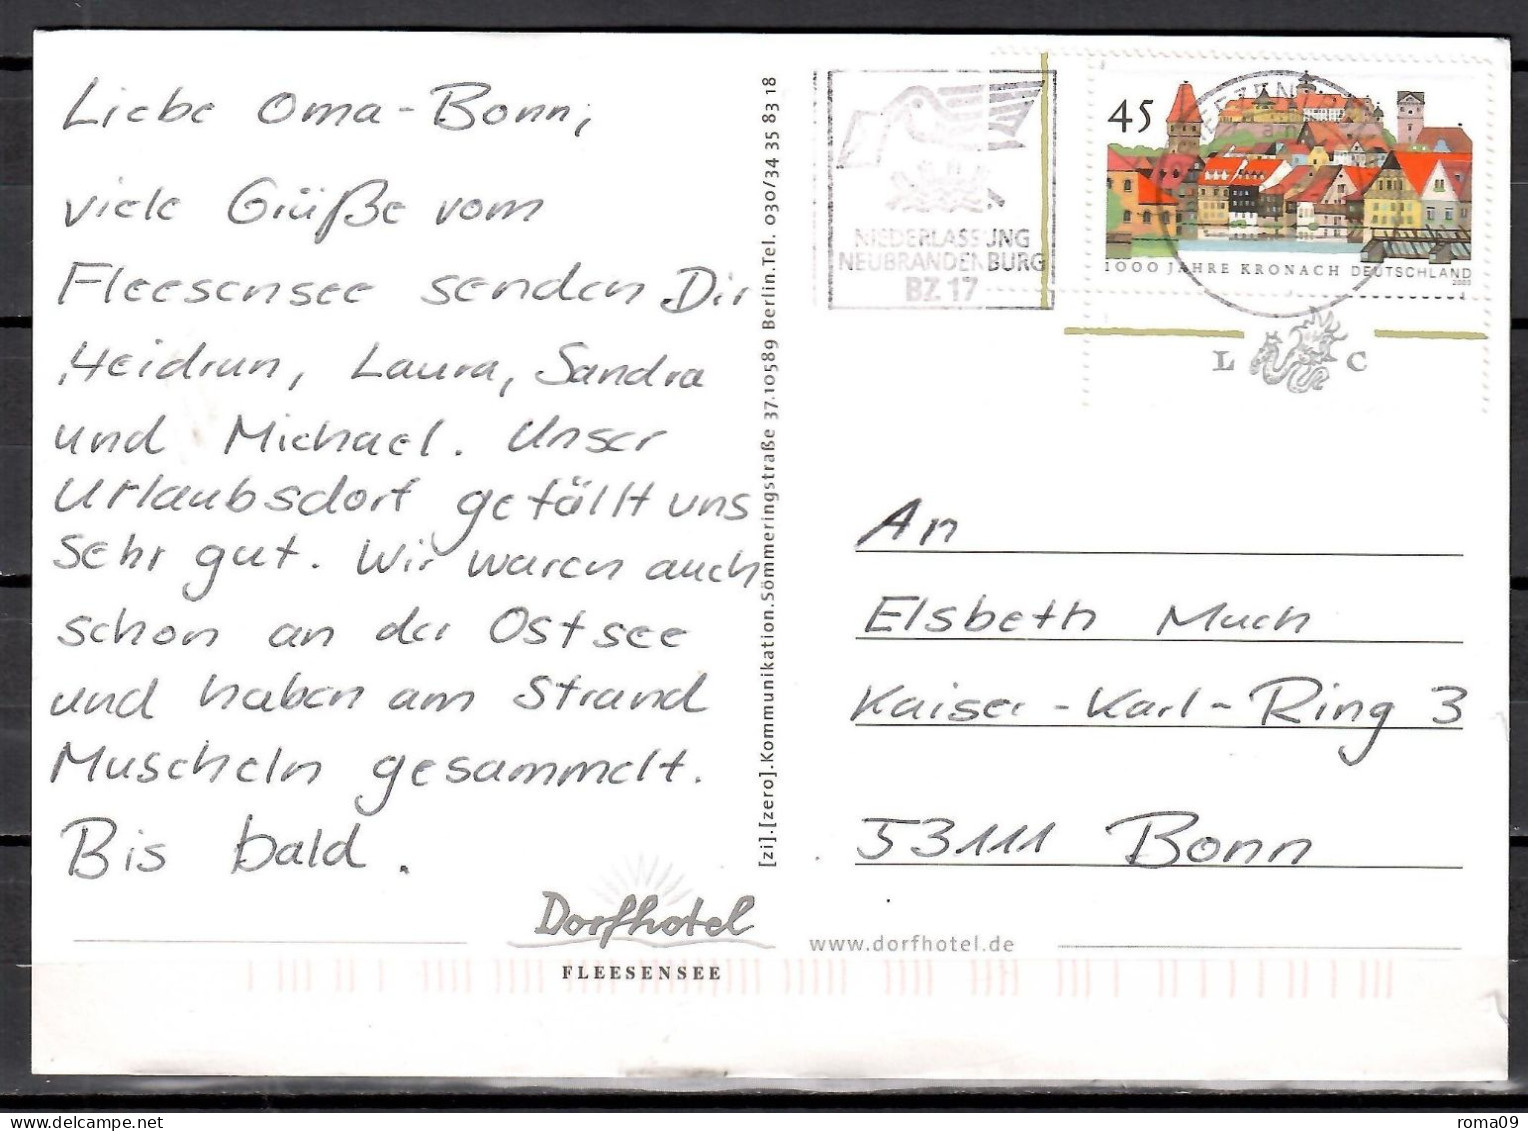 Liebe Oma-Bonn,
viele Grüße vom
Fleesensee senden Dir
Heidrun, Laura, Sandra
und Michael. Unser
Urlaubsdorf gefällt uns
sehr gut. Wir waren auch
schon an der Ostsee
und haben am Strand
Muscheln gesammelt.
Bis bald.
Dorfhotel
FLEESENSEE
[zi].[zero].Kommunikation.Sömmeringstraße 37.10589 Berlin.Tel. 030/34 35 83 18
NIEDERLASSUNG
NEUBRANDENBURG
BZ 17
45
1000 JAHRE KRONACH DEUTSCHLAND
2003
L C
An
Elsbeth Much
Kaiser-Karl-Ring 3
53111 Bonn
www.dorfhotel.de
roma09